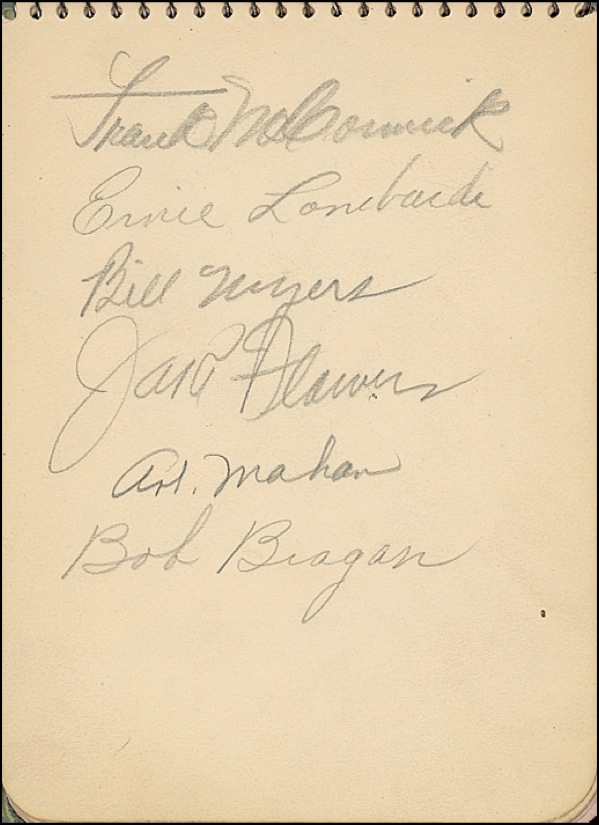 Frank McCormick
Ernie Lombardi
Bill Myers
Jake Flowers
Art. Mahan
Bob Bragan